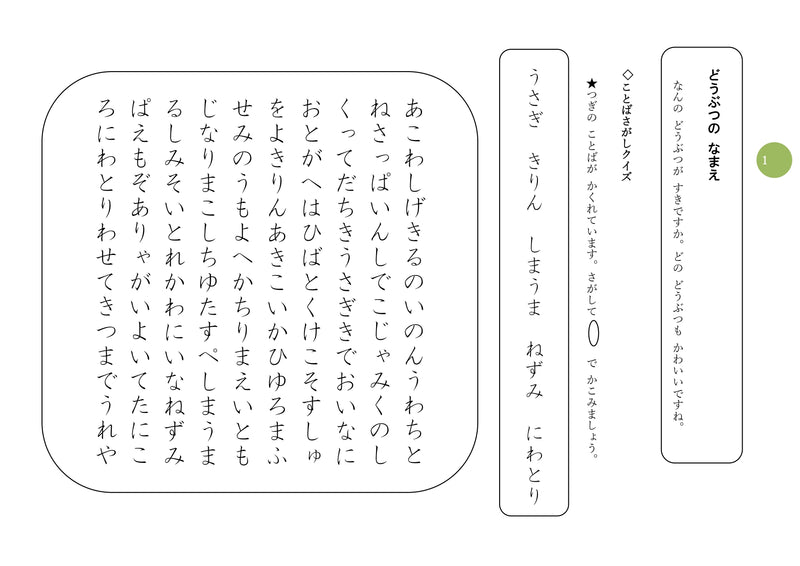 1
どうぶつの なまえ
なんの どうぶつが すきですか。どの どうぶつも かわいいですね。
◇ことばさがしクイズ
★つぎの ことばが かくれています。さがして で かこみましょう。
うさぎ きりん しまうま ねずみ にわとり
あこわしげきるのいのんうわちと
ねさっぱいんしでこじゃみくのし
くってだちきうさぎきでおいなに
おとがへはひばとくけこそすしゅ
をよきりんあきこいかひゆろまふ
せみのうもよへかちりまえいとも
じなりまこしちゆたすぺしまうま
るしみそいとれかわにいなねずみ
ぱえもぞありゃがいよいてたにこ
ろにわとりわせてきつまでうれや